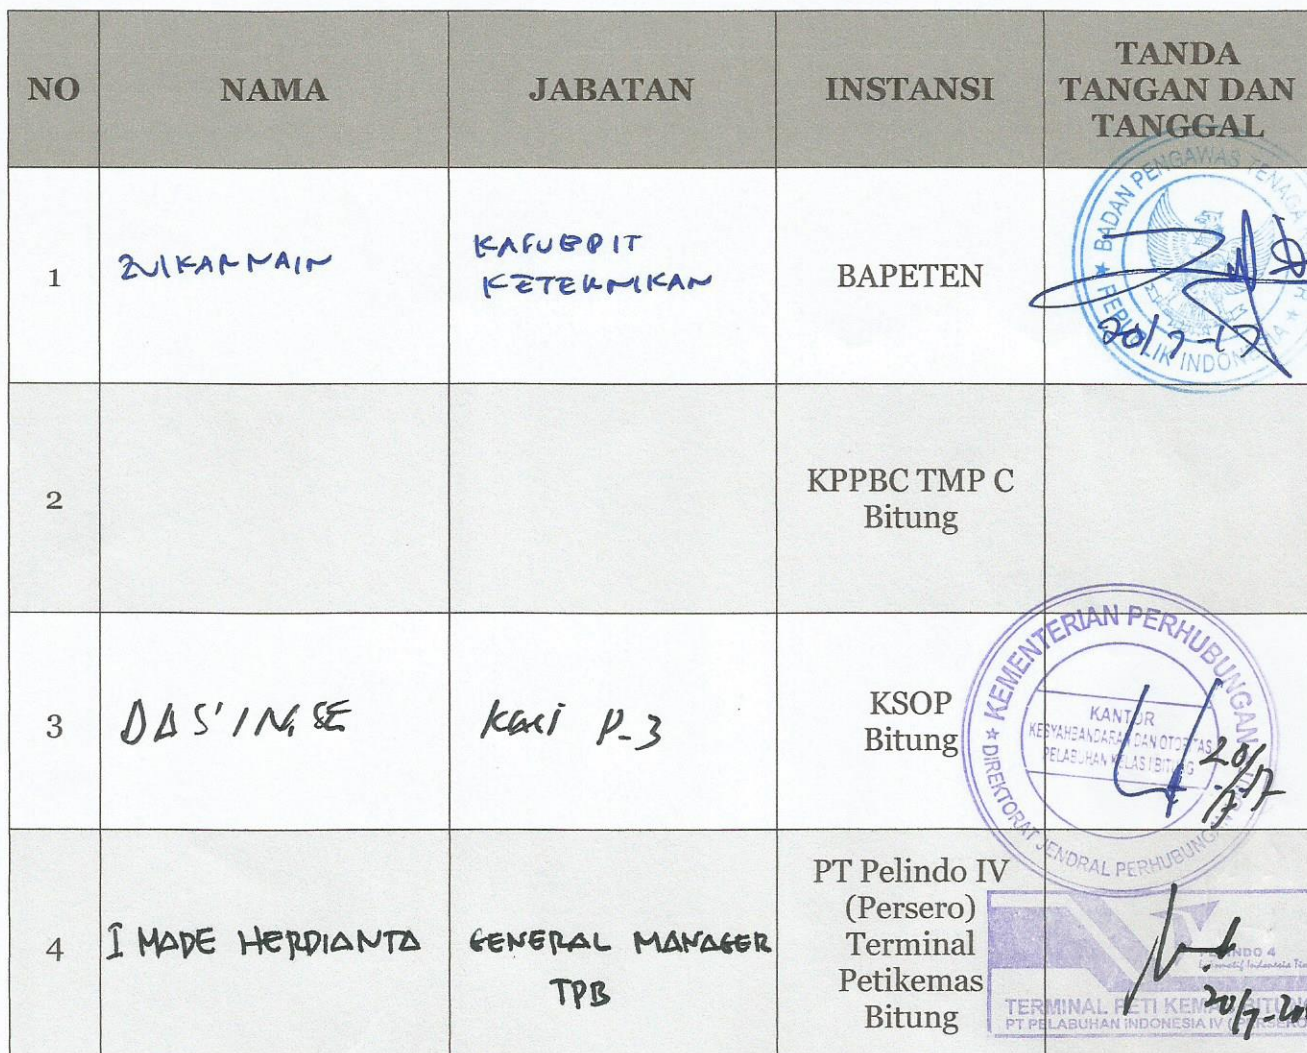 NO NAMA JABATAN INSTANSI TANDA
TANGAN DAN
TANGGAL
1 ZULKARNAIN KASUBDIT
KETEKNIKAN
BAPETEN
BADAN PENGAWAS TENAGA
REPUBLIK INDONESIA
20/7-17
2 KPPBC TMP C
Bitung
3 DAS'INGSE Kasi P-3
KSOP
Bitung
KEMENTERIAN PERHUBUNGAN
KANTOR
KESYAHBANDARAN DAN OTORITAS
PELABUHAN KELAS I BITUNG
DIREKTORAT JENDRAL PERHUBUNGAN
20/7/17
4 I MADE HERDIANTA GENERAL MANAGER
TPB
PT Pelindo IV
(Persero)
Terminal
Petikemas
Bitung
TERMINAL PETI KEMAS BITUNG
PT PELABUHAN INDONESIA IV (PERSERO)